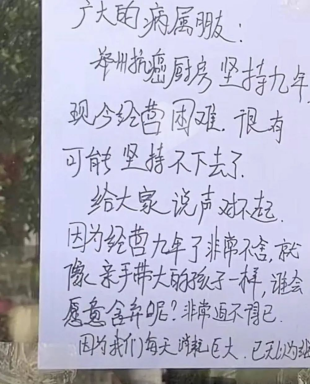 广大的病属朋友:
郑州抗癌厨房坚持九年,
现今经营困难.很有
可能坚持不下去了.
给大家说声对不起.
因为经营九年了非常不舍,就
像亲手带大的孩子一样,谁会
愿意舍弃呢?非常迫不得已.
因为我们每天消耗巨大.已无以为